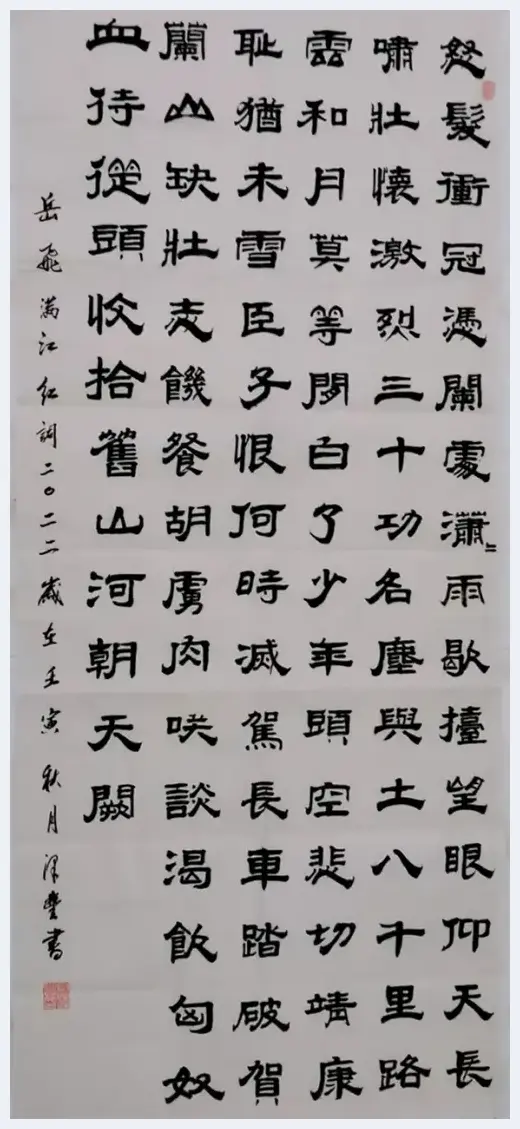 怒髮衝冠憑闌處瀟〻雨歇擡望眼仰天長
嘯壯懷激烈三十功名塵與土八千里路
雲和月莫等閒白了少年頭空悲切靖康
耻猶未雪臣子恨何時滅駕長車踏破賀
蘭山缺壯志饑餐胡虜肉咲談渴飲匈奴
血待從頭收拾舊山河朝天闕
岳飛满江红词二〇二二歲在壬寅秋月豐書